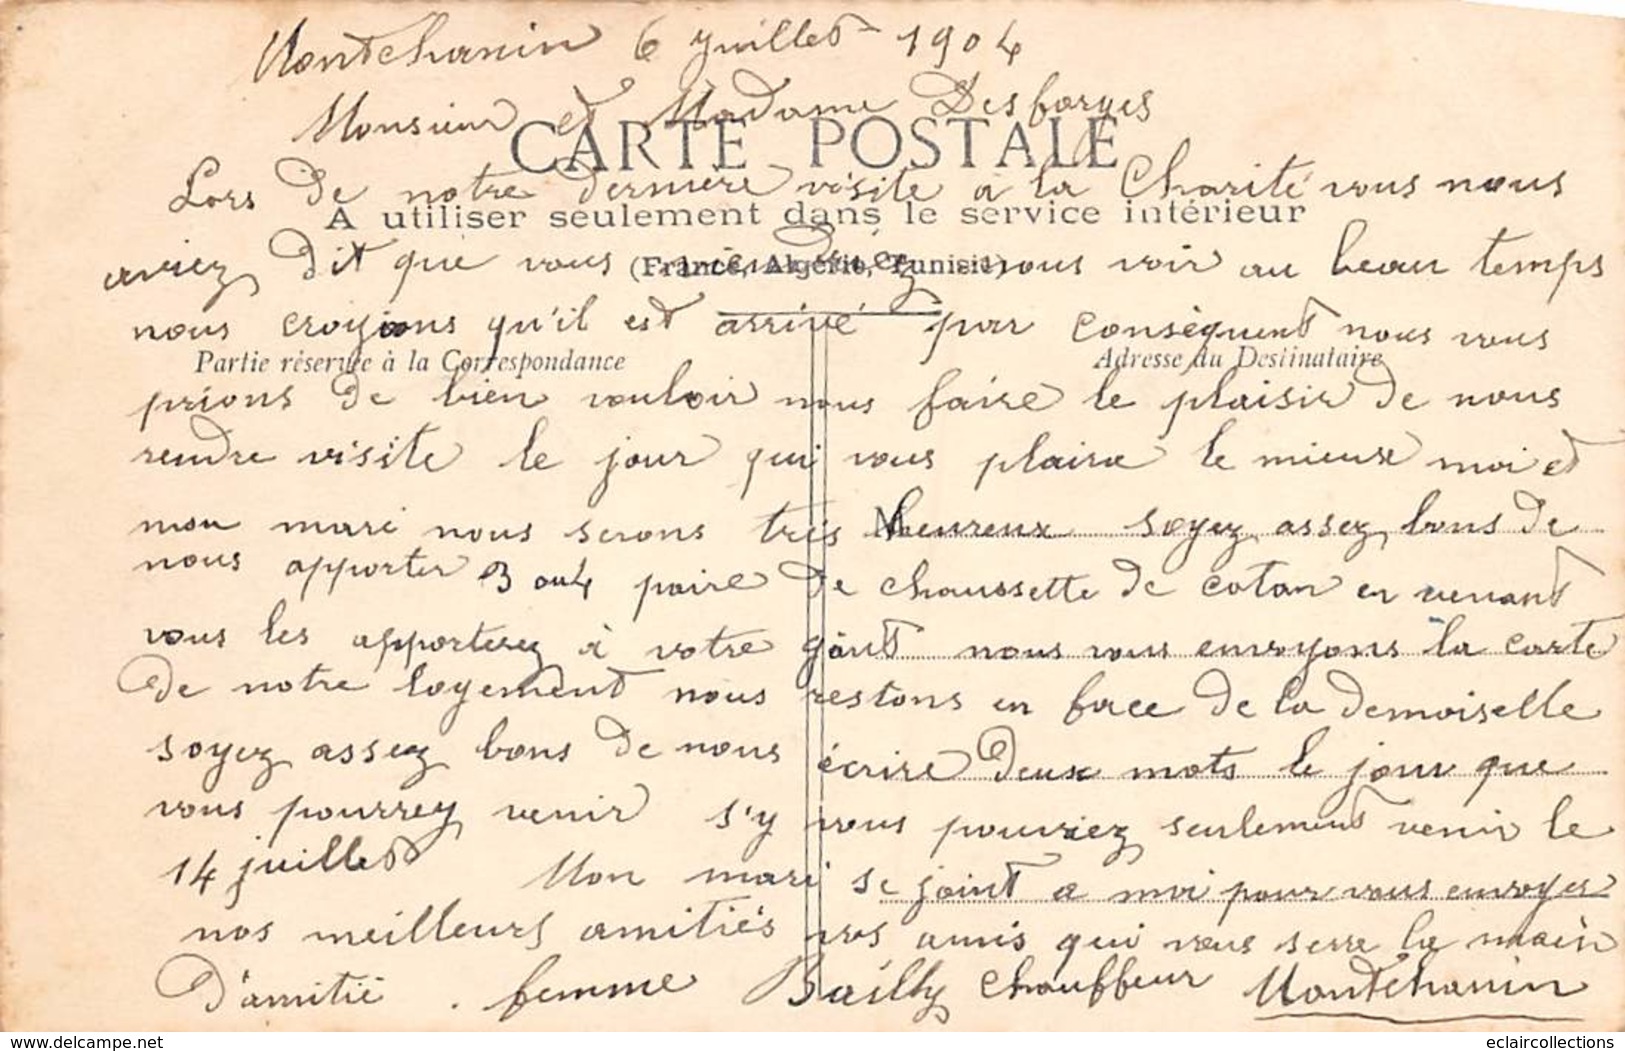 Montchanin 6 juillet 1904
Monsieur et Madame Desforges
CARTE POSTALE
Lors de notre dernière visite a la Charité vous nous
A utiliser seulement dans le service intérieur
aviez dit que vous viendriez nous voir au beau temps
(France, Algérie, Tunisie)
nous croyions qu'il est arrivé par conséquent nous vous
Partie réservée à la Correspondance
Adresse du Destinataire
prions de bien vouloir nous faire le plaisir de nous
rendre visite le jour qui vous plaira le mieux moi et
mon mari nous serons très heureux soyez assez bons de
M
nous apporter 3 ou 4 paire de chaussette de coton en venant
vous les apporterez à votre goût nous vous envoyons la carte
de notre logement nous restons en face de la demoiselle
soyez assez bons de nous écrire deux mots le jour que
vous pourrez venir s'y vous pouviez seulement venir le
14 juillet Mon mari se joint a moi pour vous envoyer
nos meilleurs amitiés vos amis qui vous serre la main
d'amitié . femme Bailly chauffeur Montchanin
https://www.delcampe.net
eclaircollections